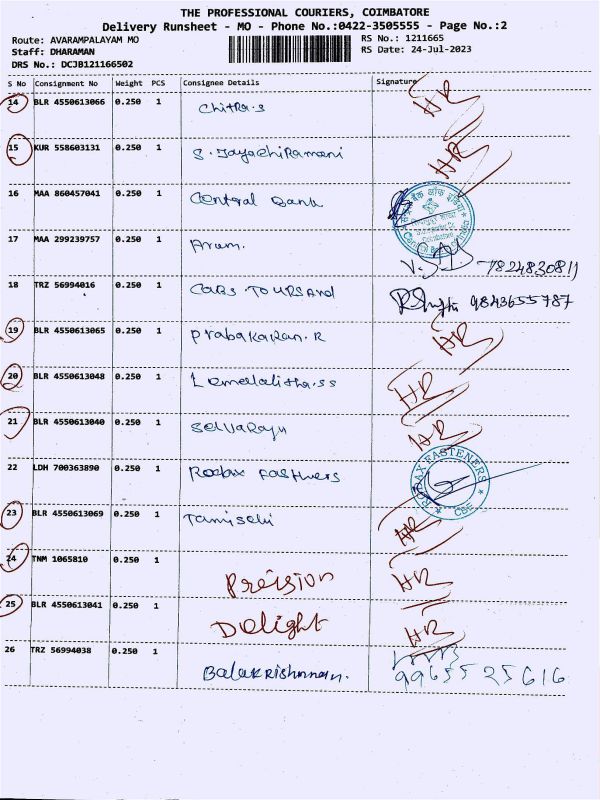 THE PROFESSIONAL COURIERS, COIMBATORE
Delivery Runsheet - MO - Phone No.:0422-3505555 - Page No.:2
Route: AVARAMPALAYAM MO RS No.: 1211665
Staff: DHARAMAN RS Date: 24-Jul-2023
DRS No.: DCJB121166502
S No Consignment No Weight PCS Consignee Details Signature
14 BLR 4550613066 0.250 1 Chitra.s HR
15 KUR 558603131 0.250 1 S. Jayachiramani HR
16 MAA 860457041 0.250 1 Central Bank
17 MAA 299239757 0.250 1 Aram. 7824830811
18 TRZ 56994016 0.250 1 CABS TOURS And 9843655787
19 BLR 4550613065 0.250 1 Prabakaran. R HR
20 BLR 4550613048 0.250 1 HR
21 BLR 4550613040 0.250 1 Selvaraju HR
22 LDH 700363890 0.250 1 Robax Fastners ROBAX FASTENERS CBE
23 BLR 4550613069 0.250 1 Tamiselvi HR
24 TNM 1065810 0.250 1 Precision HR
25 BLR 4550613041 0.250 1 Delight HR
26 TRZ 56994038 0.250 1 Balakrishnnan. 9965525616